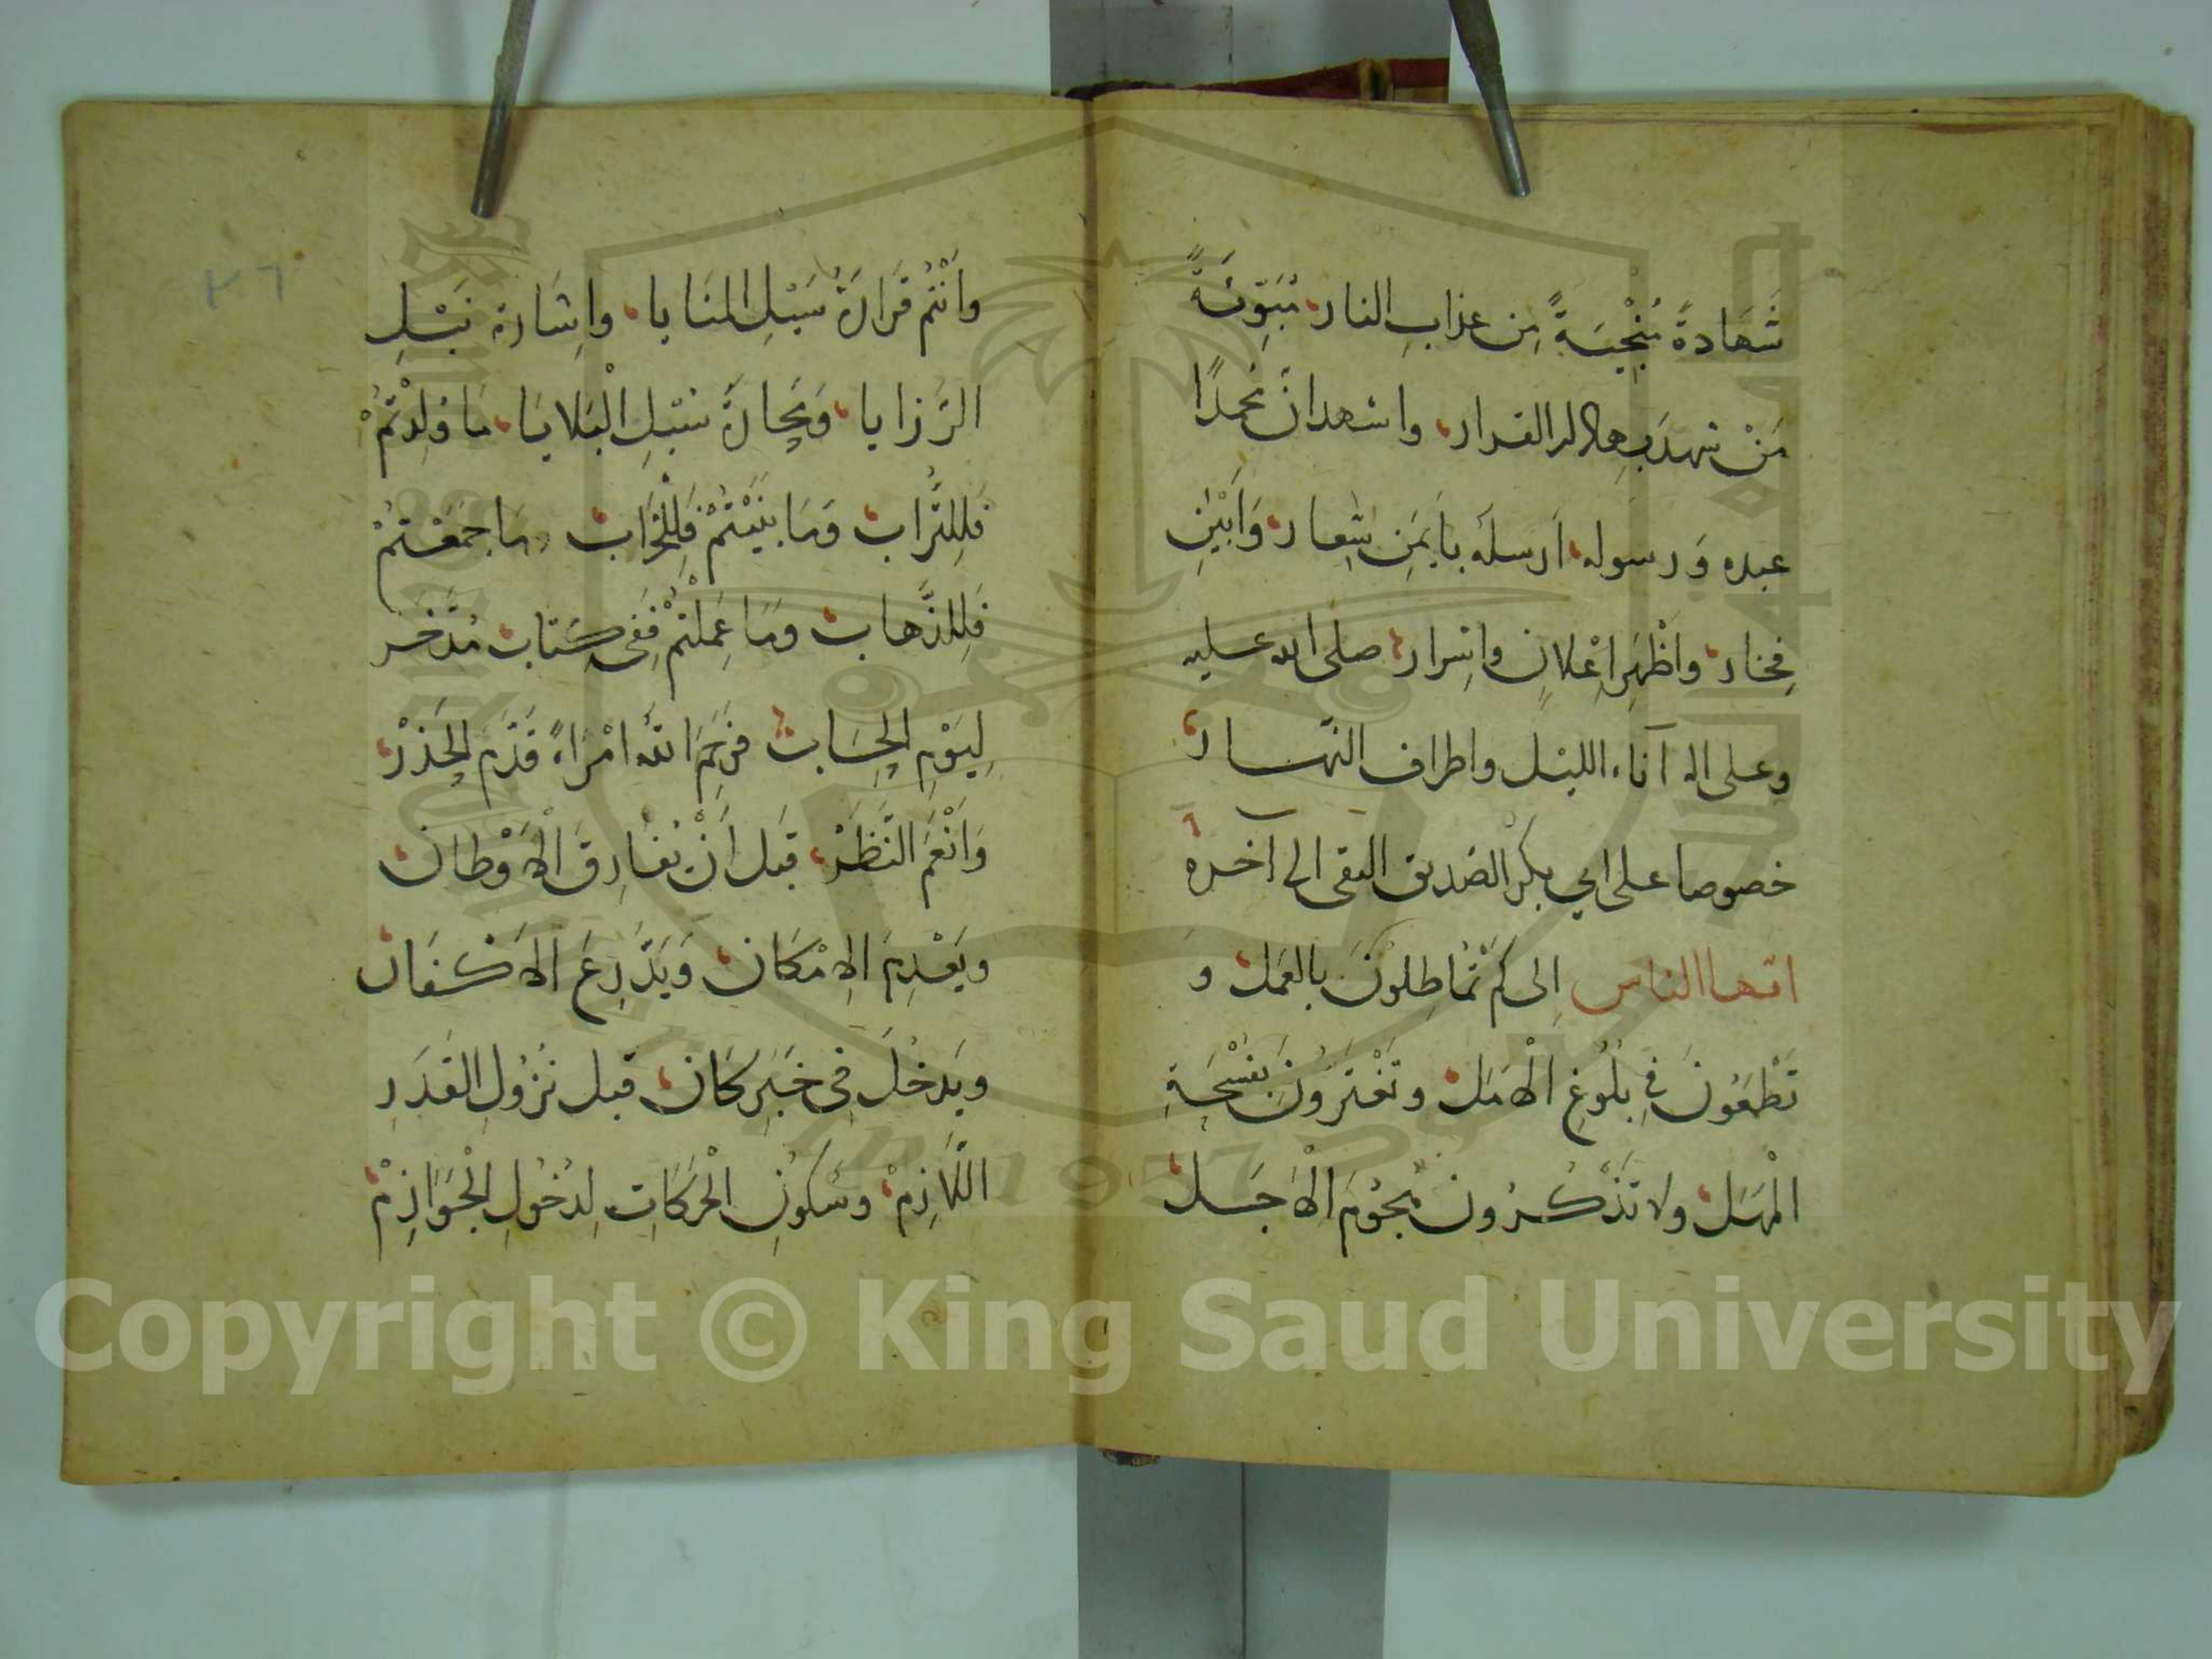 شَهَادَةً مُنْجِيَةً مِن عذابِ النار مُبَوِّئَةً
مَنْ شهدَ بها دار القرار واشهد انَّ محمدًا
عبده وَرسوله ارسلَه بايمَنِ شِعار وَأَبْيَنِ
فِخار واظْهَرِ اِعْلانٍ واسِرار صلى الله عليه
وعلى اله آناء الليل واطراف النهار
خصوصا على ابي بكر الصّديق التقى الى آخره
ايها الناس اِلى كَمْ تُماطِلُونَ بالعَمَل وَ
تَطْمَعُونَ فِي بُلُوغِ الْاَمَل وتَغْتَرُّونَ بِفُسْحَةِ
الْمَهَل ولا تَذْكُرُون هُجُومَ الْاَجَل
وأَنْتُم قَرَارَةُ سَيْلِ المنَايا واِشَارة نَبْلِ
الرَّزايا وَمَحَارَةُ سُبُلِ الْبَلايَا مَا وَلَدْتُمْ
فَلِلتُّرَاب وَمَا بَنَيْتُمْ فَلِلْخَرَاب مَا جَمَعْتُمْ
فَلِلذَّهاب وَمَا عَمِلْتُمْ فَفِى كِتاب مُدَّخَر
لِيَوْمِ الحِسَاب فرَحِمَ اللهُ امْرَاءً قَدَّمَ الحَذَرْ
وَاَنْعَمَ النَّظَرْ قبَل اَنْ يُفارِقَ الْاَوْطان
ويَعْدِمَ الاِمْكَان وَيَدَّرِعَ الاَكْفَان
ويَدخُلَ فِى خَبَرِ كَان قبل نُزُولِ القَدَرِ
اللَّازِمْ وسُكُونِ الْحَرَكَاتِ لِدُخُولِ الْجَوَازِمْ
٣٦
Copyright © King Saud University
1957